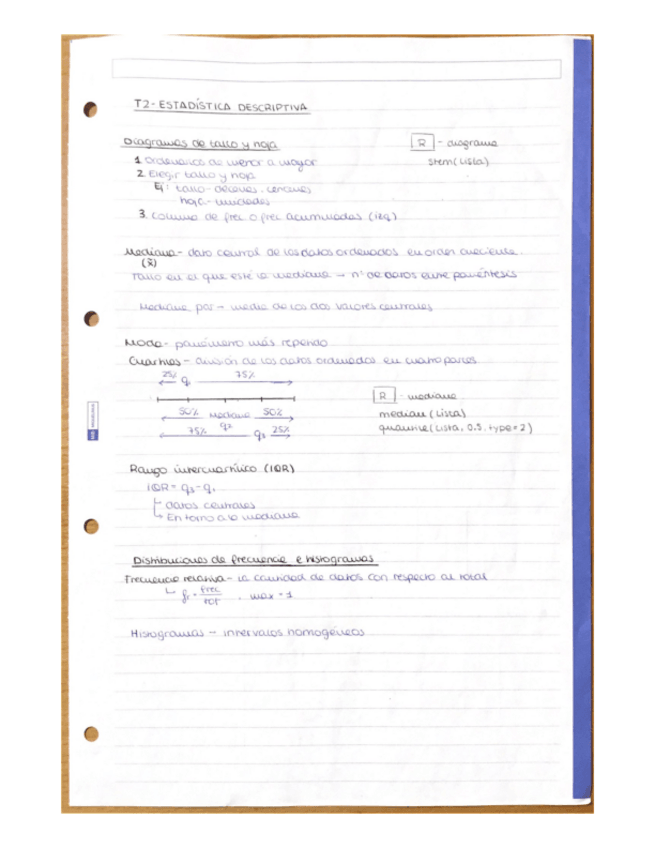 T2- ESTADÍSTICA DESCRIPTIVA
Diagramas de tallo y hoja
R - diagrama
stem(Lista)
1. Ordenarlos de menor a mayor
2. Elegir tallo y hoja
Ej: tallo - decenas, centenas
hoja - unidades
3. Columna de frec o frec acumuladas (izq)
Mediana - dato central de los datos ordenados en orden creciente.
(x̃)
Tallo en el que esté la mediana → nº de datos entre paréntesis
Mediana par → media de los dos valores centrales
Moda - parámetro más repetido
Cuartiles - división de los datos ordenados en cuatro partes
25% q₁ 75%
50% Mediana 50%
q₂
75% q₃ 25%
R - mediana
median(Lista)
quantile(Lista, 0.5, type=2)
Rango intercuartílico (IQR)
IQR = q₃ - q₁
datos centrales
En torno a la mediana
Distribuciones de frecuencia e histogramas
Frecuencia relativa - la cantidad de datos con respecto al total
fᵣ = frec/tot , max = 1
Histogramas → intervalos homogéneos